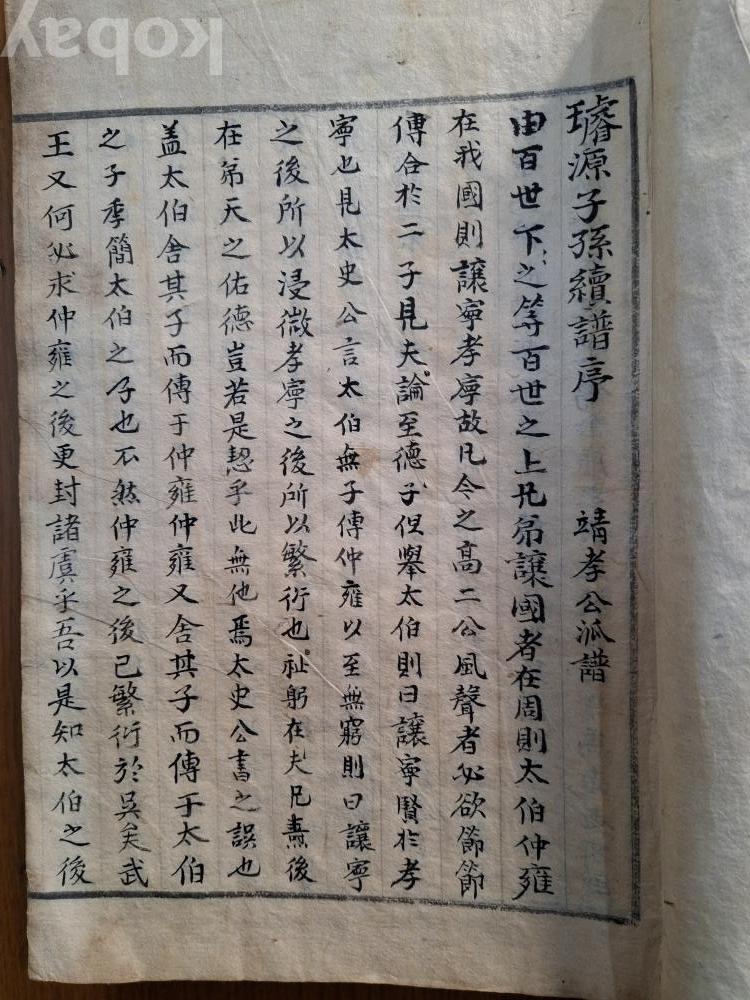 璿源子孫續譜序 靖孝公派譜
由百世下之等百世之上凡弟讓國者在周則太伯仲雍
在我國則讓寧孝寧故凡今之高二公風聲者必欲節節
傅合於二子見夫論至德子但擧太伯則曰讓寧賢於孝
寧也見太史公言太伯無子傳仲雍以至無窮則曰讓寧
之後所以浸微孝寧之後所以繁衍也祉躬在夫兄燾後
在弟天之佑德豈若是恝乎此無他焉太史公書之誤也
盖太伯舍其子而傳于仲雍仲雍又舍其子而傳于太伯
之子季簡太伯之子也不然仲雍之後已繁衍於吳矣武
王又何必求仲雍之後更封諸虞乎吾以是知太伯之後
kobay